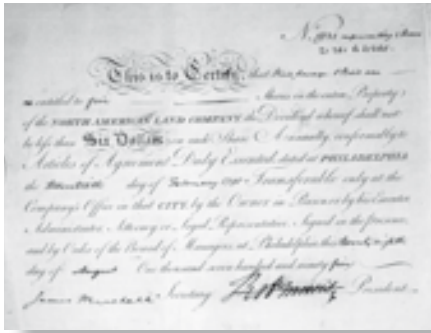 This is to Certify, that
is entitled to five Shares in the entire Property
of the NORTH AMERICAN LAND COMPANY, the Dividend whereof shall not
be less than Six Dollars on each Share Annually, conformably to
Articles of Agreement Duly Executed, dated at PHILADELPHIA
the day of February 1795 Transferable only at the
Company's Office in that CITY, by the Owner in Person or by his Executor
Administrator, Attorney or Legal Representative Signed in the presence
and by Order of the Board of Managers, at Philadelphia this
day of August One thousand seven hundred and ninety five
James Marshall Secretary President